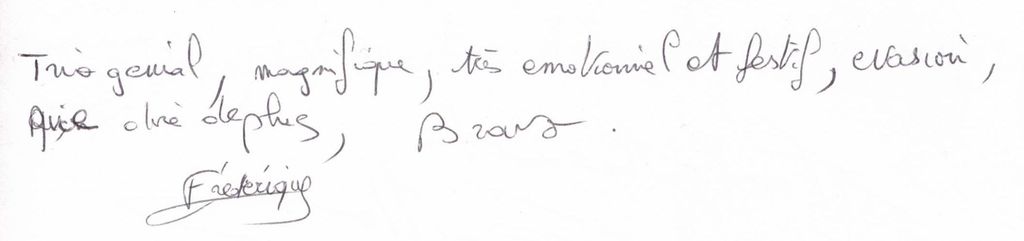 Trio genial, magnifique, très emotionnel et festif, evasion,
Que dire de plus, Bravo.
Fréderique